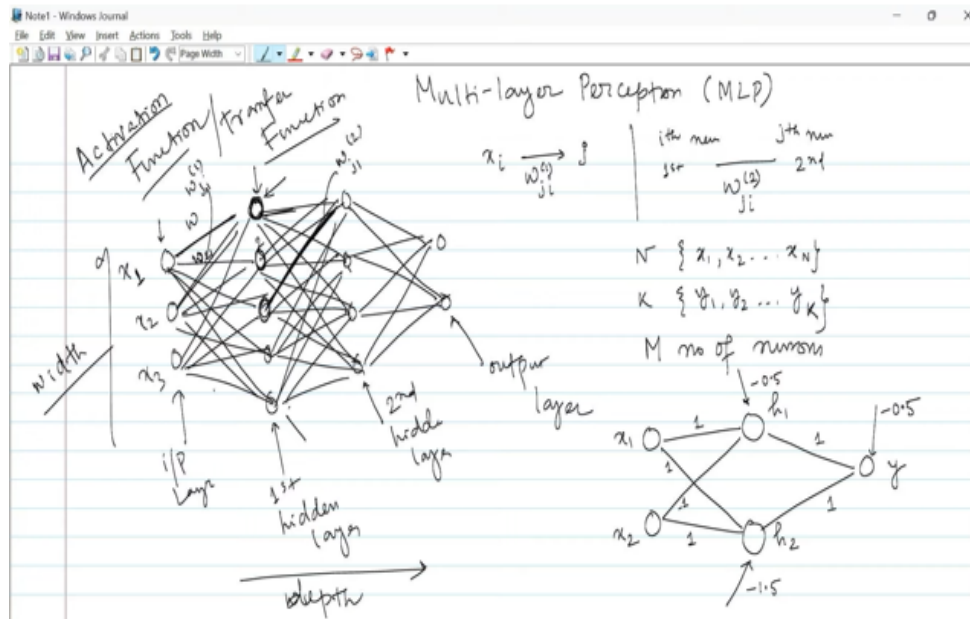 Note1 - Windows Journal
File Edit View Insert Actions Tools Help
Page Width
Multi-layer Perception (MLP)
Activation
Function/Transfer
Function
x_i → j
w_ji^(1)
ith neu jth neu
1st 2nd
w_ji^(2)
N {x_1, x_2 ... x_N}
K {y_1, y_2 ... y_K}
M no of nurons
w_j1^(2)
w
x_1
x_2
x_3
width
i/P
Layr
1st
hidden
layer
2nd
hidde
laye
output
layer
depth
-0.5
h_1
-0.5
x_1
1
1
1
y
1
1
x_2
1
h_2
-1.5